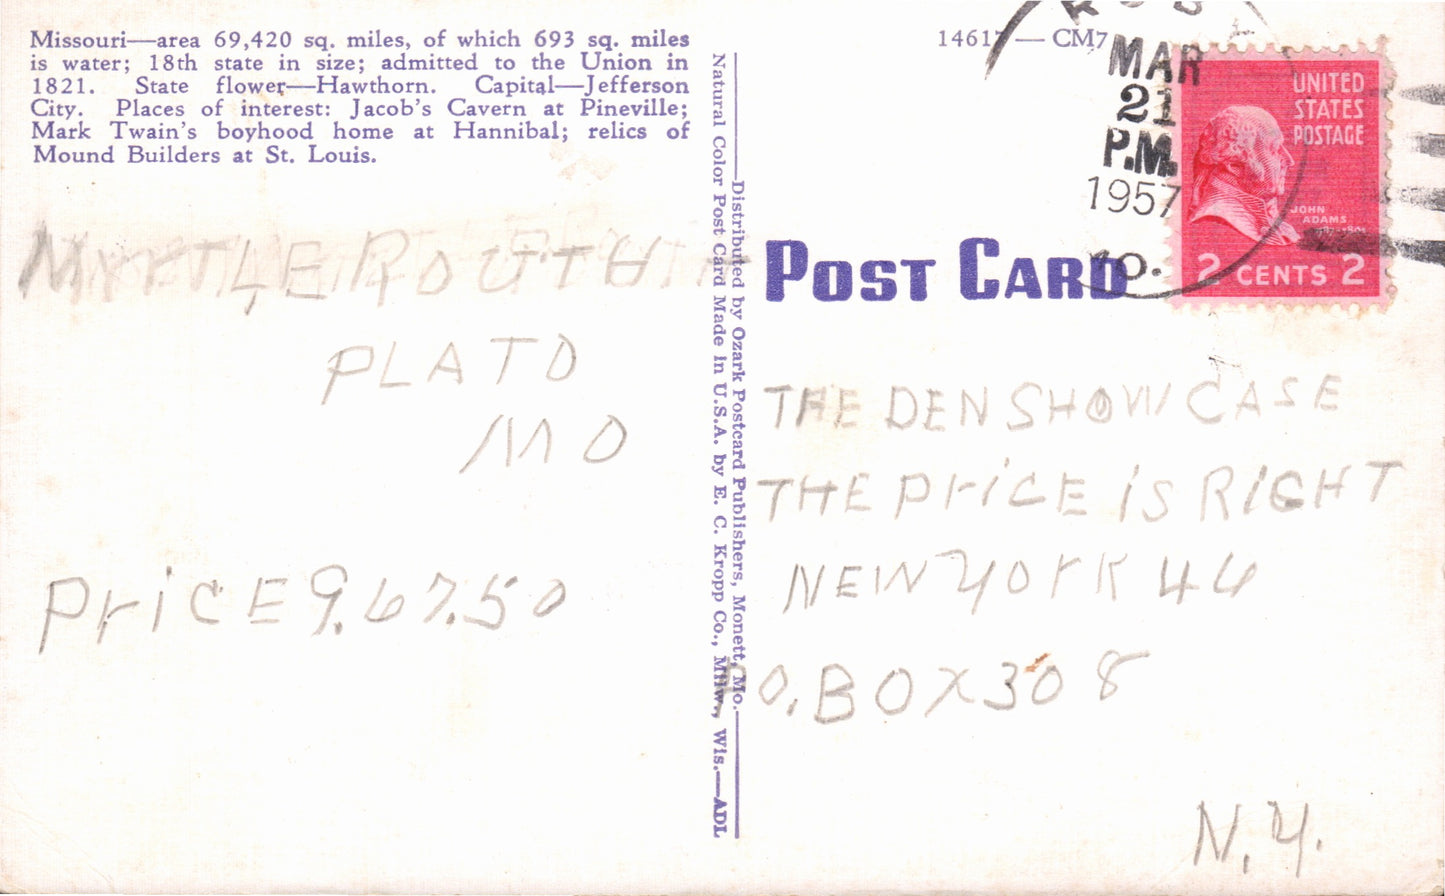 Missouri—area 69,420 sq. miles, of which 693 sq. miles
is water; 18th state in size; admitted to the Union in
1821. State flower—Hawthorn. Capital—Jefferson
City. Places of interest: Jacob's Cavern at Pineville;
Mark Twain's boyhood home at Hannibal; relics of
Mound Builders at St. Louis.
MYRTLE ROUTH
PLATO
MO
PriCE 9.67.50
Distributed by Ozark Postcard Publishers, Monett, Mo.
Natural Color Post Card Made in U.S.A. by E. C. Kropp Co., Milw., Wis.—ADL
14617 — CM7
MAR
21
P.M.
1957
UNITED
STATES
POSTAGE
JOHN
ADAMS
2 CENTS 2
POST CARD
THE DEN SHOW CASE
THE PriCE iS RIGHT
NEW YOrK 46
P.O. BOX 308
N.Y.